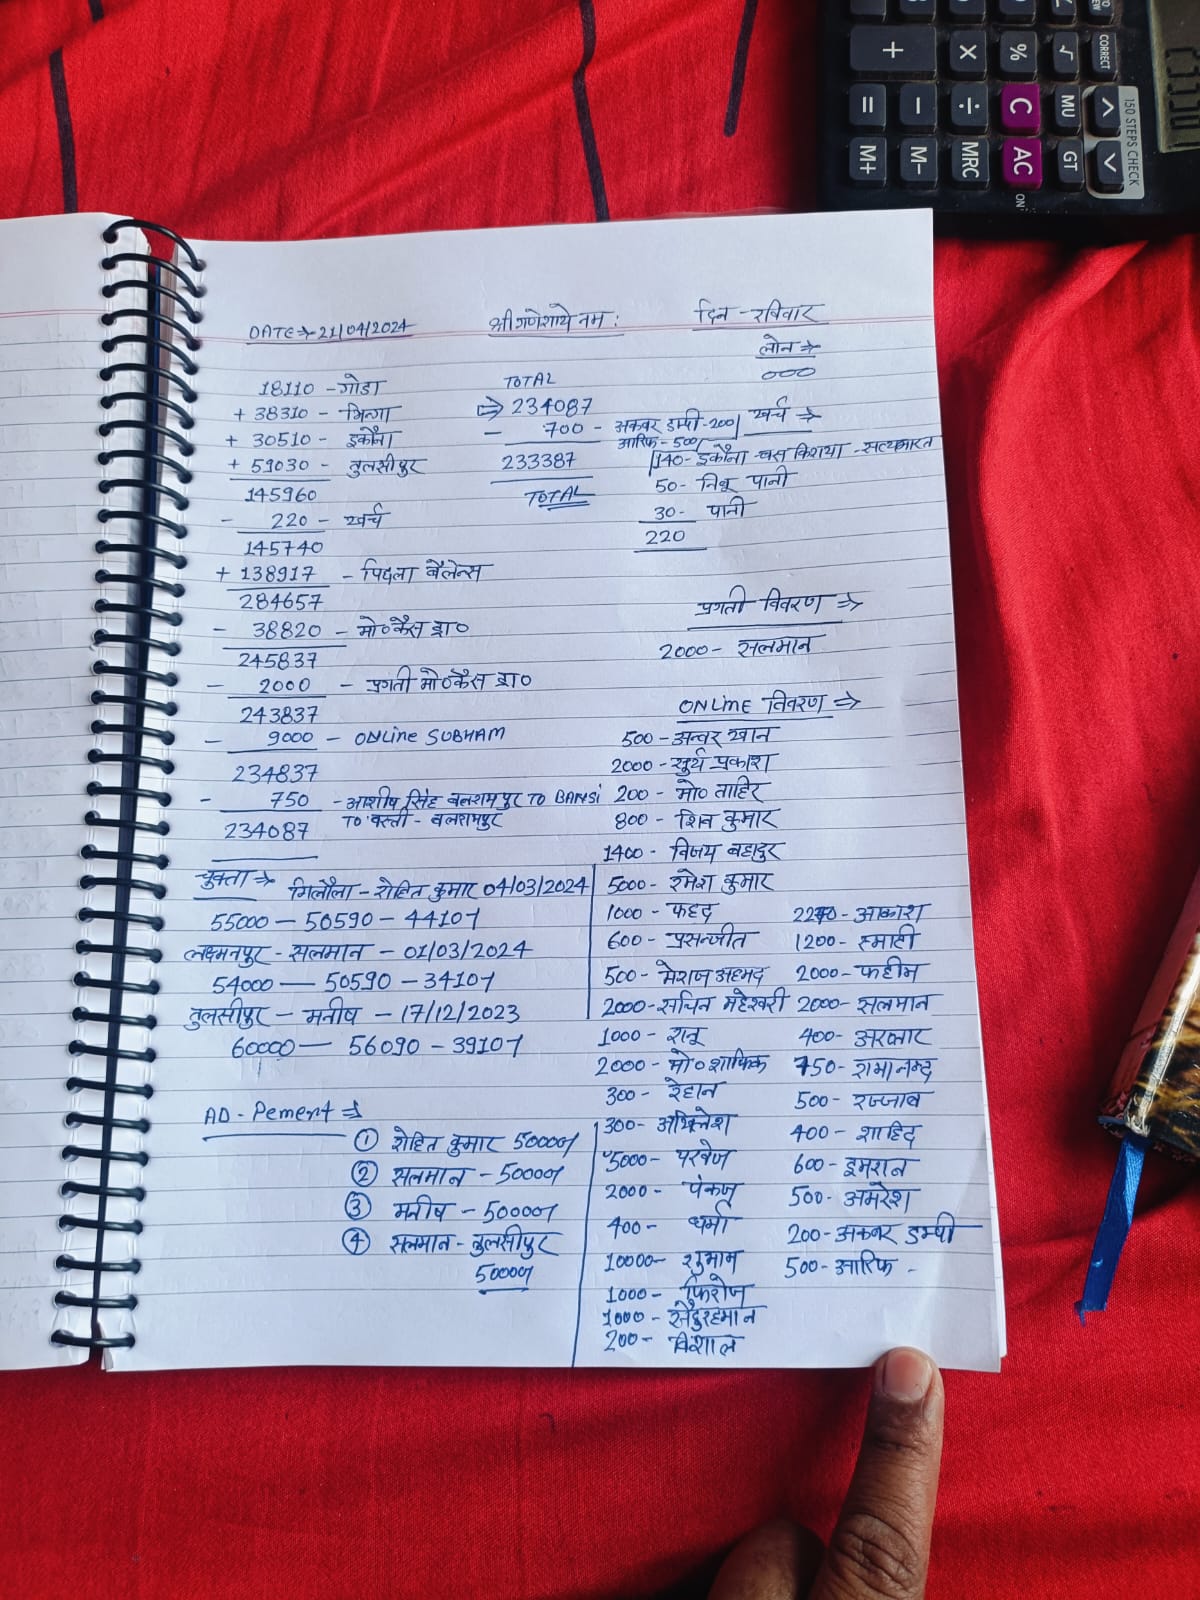 DATE → 21/04/2024
श्री गणेशाये नम:
दिन - रविवार
18110 - गोंडा
+ 38310 - भिन्गा
+ 30510 - इकौना
+ 59030 - तुलसीपुर
145960
- 220 - खर्च
145740
+ 138917 - पिछला बैलेन्स
284657
- 38820 - मो० कैस द्वा०
245837
- 2000 - प्रगती मो० कैस द्वा०
243837
- 9000 - ONLine SUBHAM
234837
- 750 - आशीष सिंह बलरामपुर TO BANSi
TO बस्ती - बलरामपुर
234087
TOTAL
⇒ 234087
- 700 - अकबर डम्पी - 200
आरिफ - 500
233387
TOTAL
लोन →
000
खर्च →
140 - इकौना - बस किराया - सत्यभारत
50 - निबू पानी
30 - पानी
220
प्रगती विवरण →
2000 - सलमान
ONLiNe विवरण →
500 - अनवर खान
2000 - सुर्य प्रकाश
200 - मो० ताहिर
800 - शिव कुमार
1400 - विजय बहादुर
5000 - रमेश कुमार
1000 - फहद
600 - प्रसन्जीत
500 - मेराज अहमद
2000 - सचिन महेश्वरी
1000 - रानू
2000 - मो० शाफिक
300 - रेहान
300 - अखिलेश
5000 - परवेज
2000 - पंकज
400 - धर्मा
10000 - शुभाम
1000 - फिरोज
1000 - सैदुरहमान
200 - विशाल
- आकाश
1200 -
2000 - फहीम
2000 - सलमान
400 -
750 - रामानन्द
500 - रज्जाब
400 - शाहिद
600 - इमरान
500 - अमरेश
200 - अकबर डम्पी
500 - आरिफ -
चुक्ता → गिलौला - रोहित कुमार 04/03/2024
55000 - 50590 - 4410/
लक्ष्मनपुर - सलमान - 01/03/2024
54000 - 50590 - 3410/
तुलसीपुर - मनीष - 17/12/2023
60000 - 56090 - 3910/
AD - Pement ⇒
① रोहित कुमार 50000/
② सलमान - 50000/
③ मनीष - 50000/
④ सलमान - तुलसीपुर
50000/
+ × % √ CORRECT
= - ÷ C MU
M+ M- MRC AC GT
150 STEPS CHECK
ON